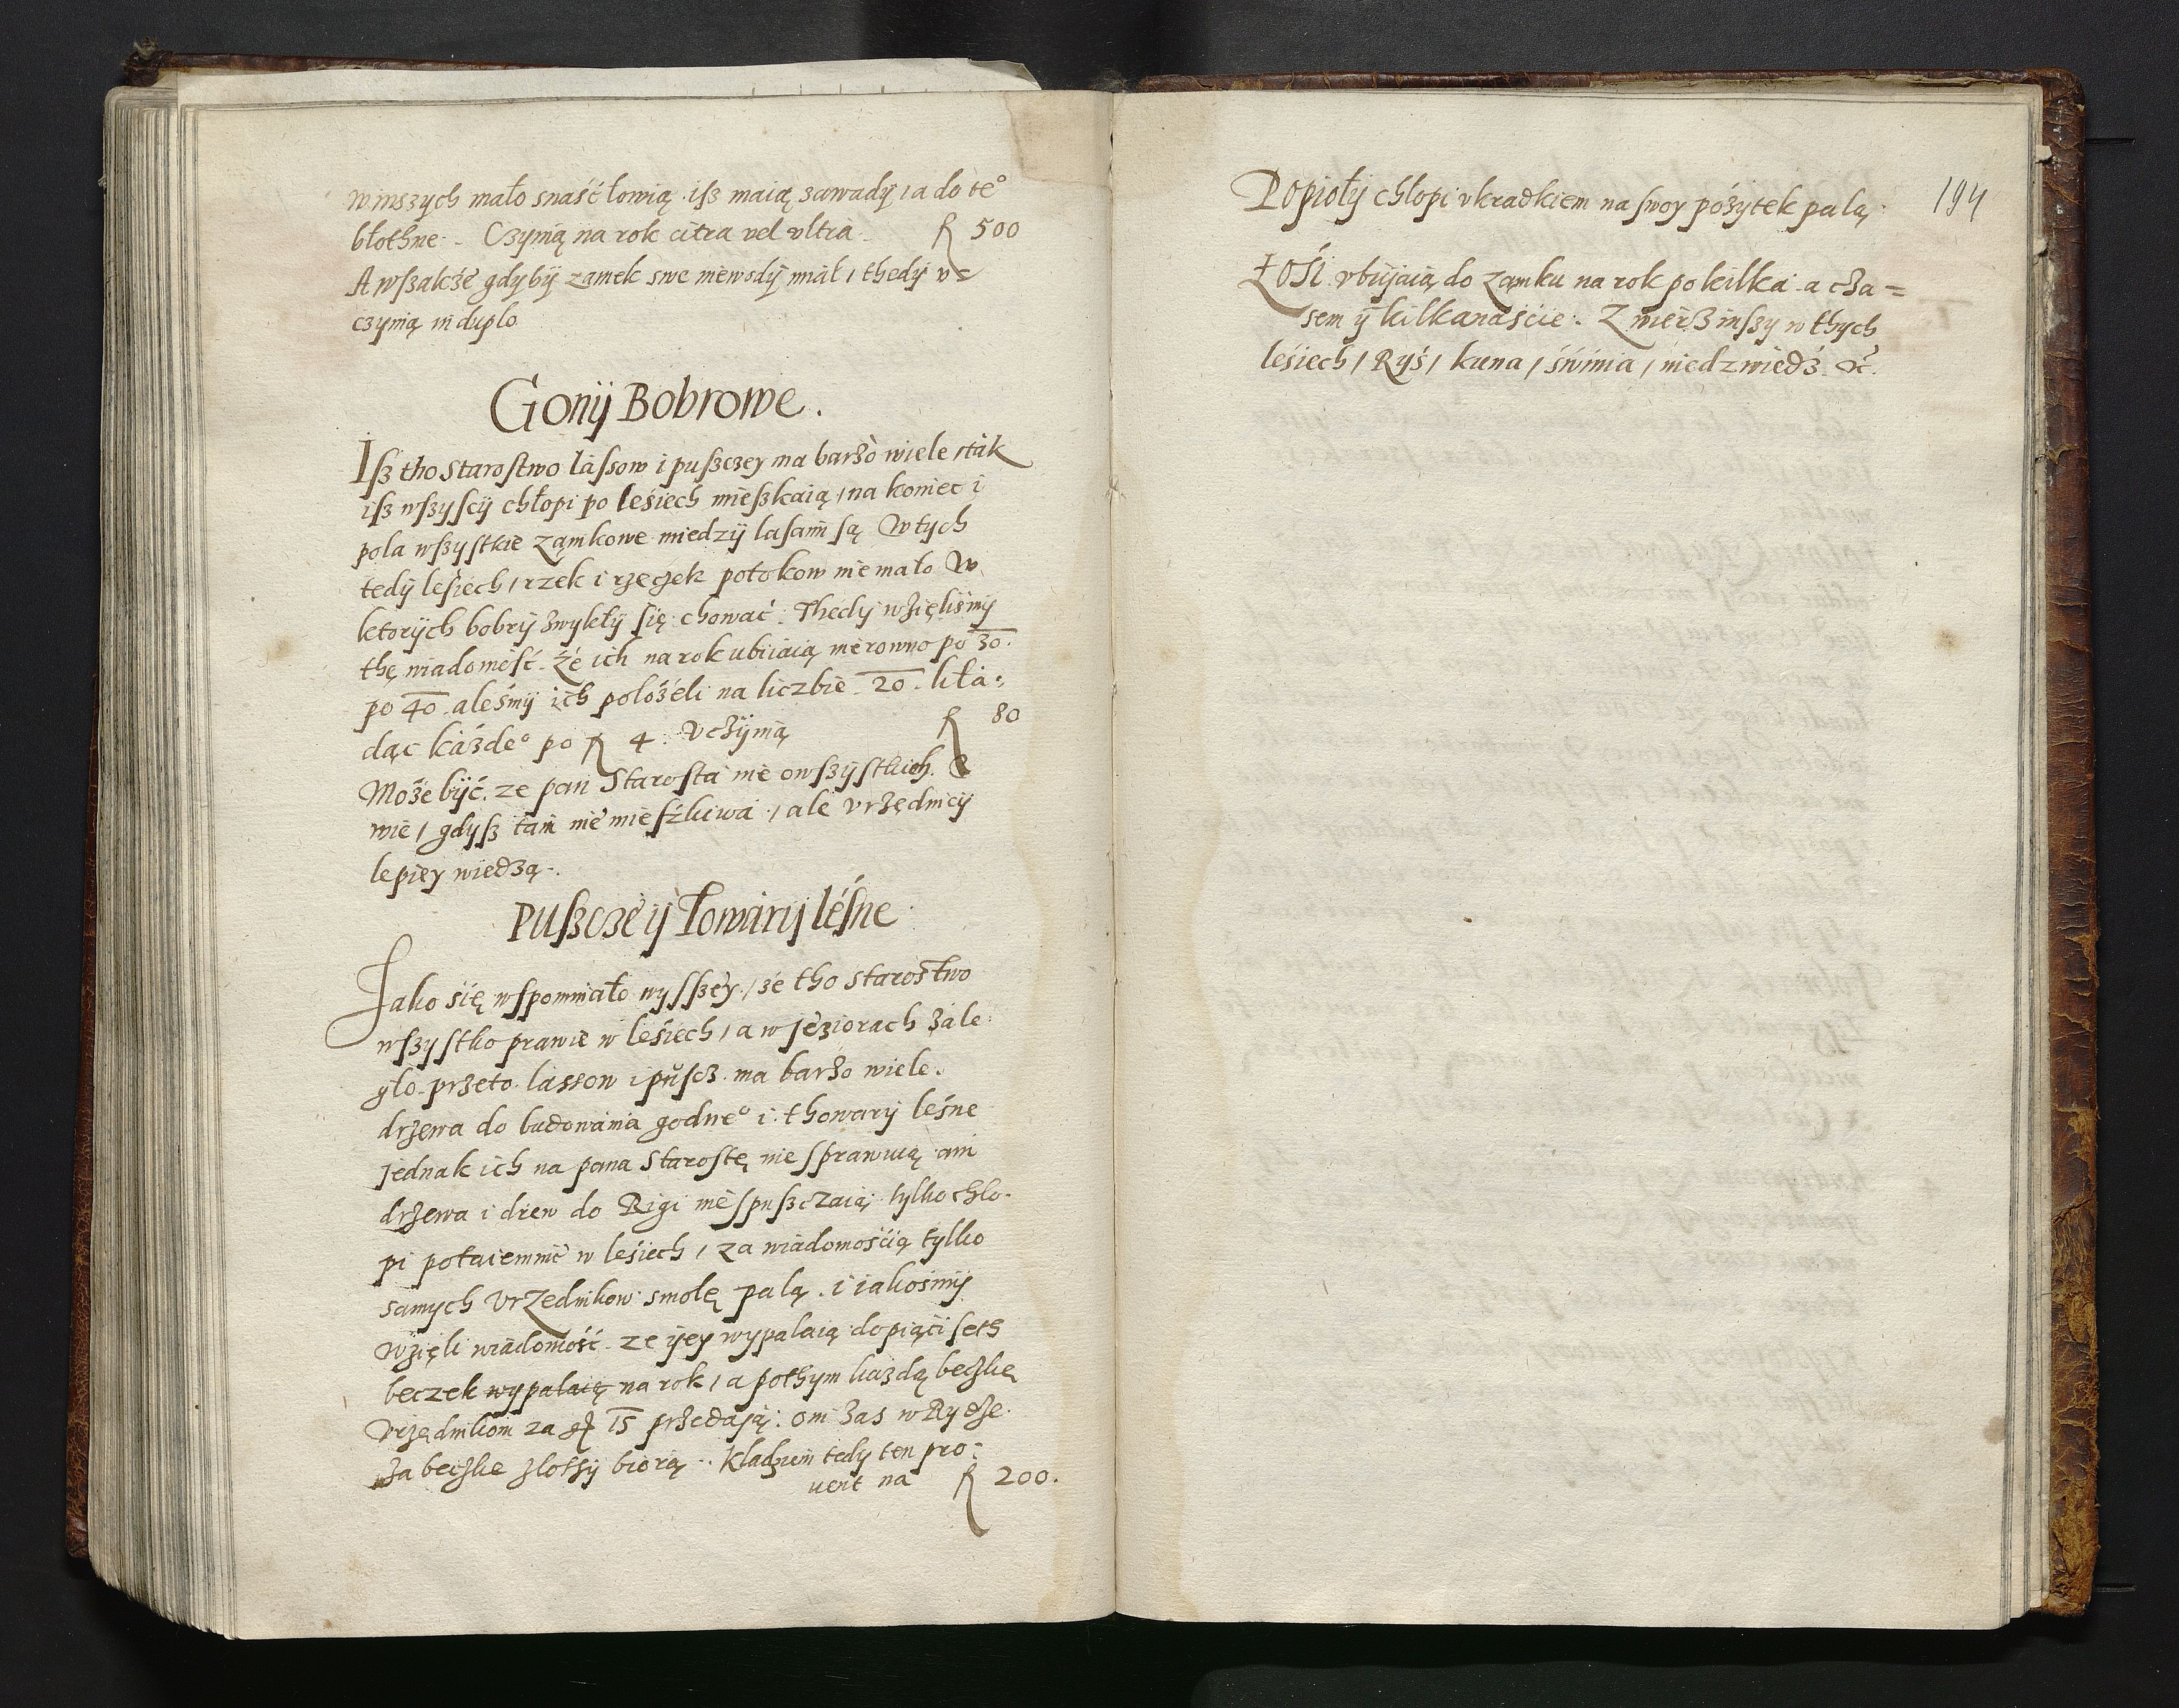 w inszych mało snaść łowią, isz maią zawady, a do te°
błothne. Czynią na rok citra vel vltra fl 500
A wszakże gdyby zamek swe niewody miał, thedy v=
czynią in duplo.
Gony Bobrowe.
Isz tho Starostwo lassow i puszczey ma barzo wiele, tak
isz wszyscy chłopi po lesiech mieszkaią, na koniec i
pola wszystkie zamkowe miedzy lasami są. W tych
tedy lesiech, rzek i rzeczek potokow nie mało. W
ktorych bobry zwykły się chować. Thedy wzięlismy
thę wiadomość. Że ich na rok ubiiaią nierowno po 30.
po 40. alesmy ich położeli na liczbie 20. kła=
dąc każde° po fl 4. vczynią fl 80
Może być, ze pan Starosta nie o wszystkich
wie, gdysz tam nie mieszkiwa, ale vrzędnicy
lepiey wiedzą.
Puszcze y Towary léśne
Jako się wspomniało wysszey, że tho starostwo
wszystko prawie w lesiech, a w jeziorach zale
gło. przeto lassow i puscz ma barzo wiele.
drzewa do budowania godne° i thowary leśne
jednak ich na pana Starostę nie sprawuią ani
drzewa i drew do Rigi nie spuszczaią, tylko chło-
pi potaiemnie w lesiech, za wiadomością tylko
samych vrzednikow smołę palą. i iakośmy
wzięli wiadomość ze iey wypalaią do piąci set
beczek wypalaią na rok, a pothym każdą beczkę
vrzędnikom za g 15 przedają: oni zas w Rydze
za beczke złothy biorą. Kładziem tedy ten pro=
uent na fl 200.
194
Popioły chłopi vkradkiem na swoy pożytek palą.
Łosi vbijaią do zamku na rok po kilka a cza=
sem y kilkanaście. Zwierz inszy w thych
lesiech, Ryś, kuna, świnia, niedzwiedź &c.